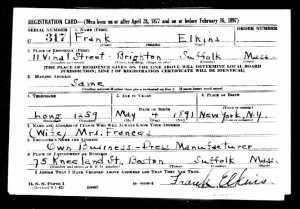 REGISTRATION CARD—(Men born on or after April 28, 1877 and on or before February 16, 1897)
SERIAL NUMBER 1. NAME (Print) ORDER NUMBER
U 317 Frank Elkins
2. PLACE OF RESIDENCE (Print)
11 Vinal Street- Brighton Suffolk Mass.
[THE PLACE OF RESIDENCE GIVEN ON THE LINE ABOVE WILL DETERMINE LOCAL BOARD
JURISDICTION; LINE 2 OF REGISTRATION CERTIFICATE WILL BE IDENTICAL]
3. MAILING ADDRESS
Same
4. TELEPHONE 5. AGE IN YEARS 6. PLACE OF BIRTH
DATE OF BIRTH
Long 1259 May 4 1891 New York, N.Y.
7. NAME AND ADDRESS OF PERSON WHO WILL ALWAYS KNOW YOUR ADDRESS
(Wife) Mrs. Frances
8. EMPLOYER'S NAME AND ADDRESS
Own Business-Dress Manufacturer
9. PLACE OF EMPLOYMENT OR BUSINESS
75 Kneeland St, Boston Suffolk Mass.
I AFFIRM THAT I HAVE VERIFIED ABOVE ANSWERS AND THAT THEY ARE TRUE.
D. S. S. Form 1
Frank Elkins